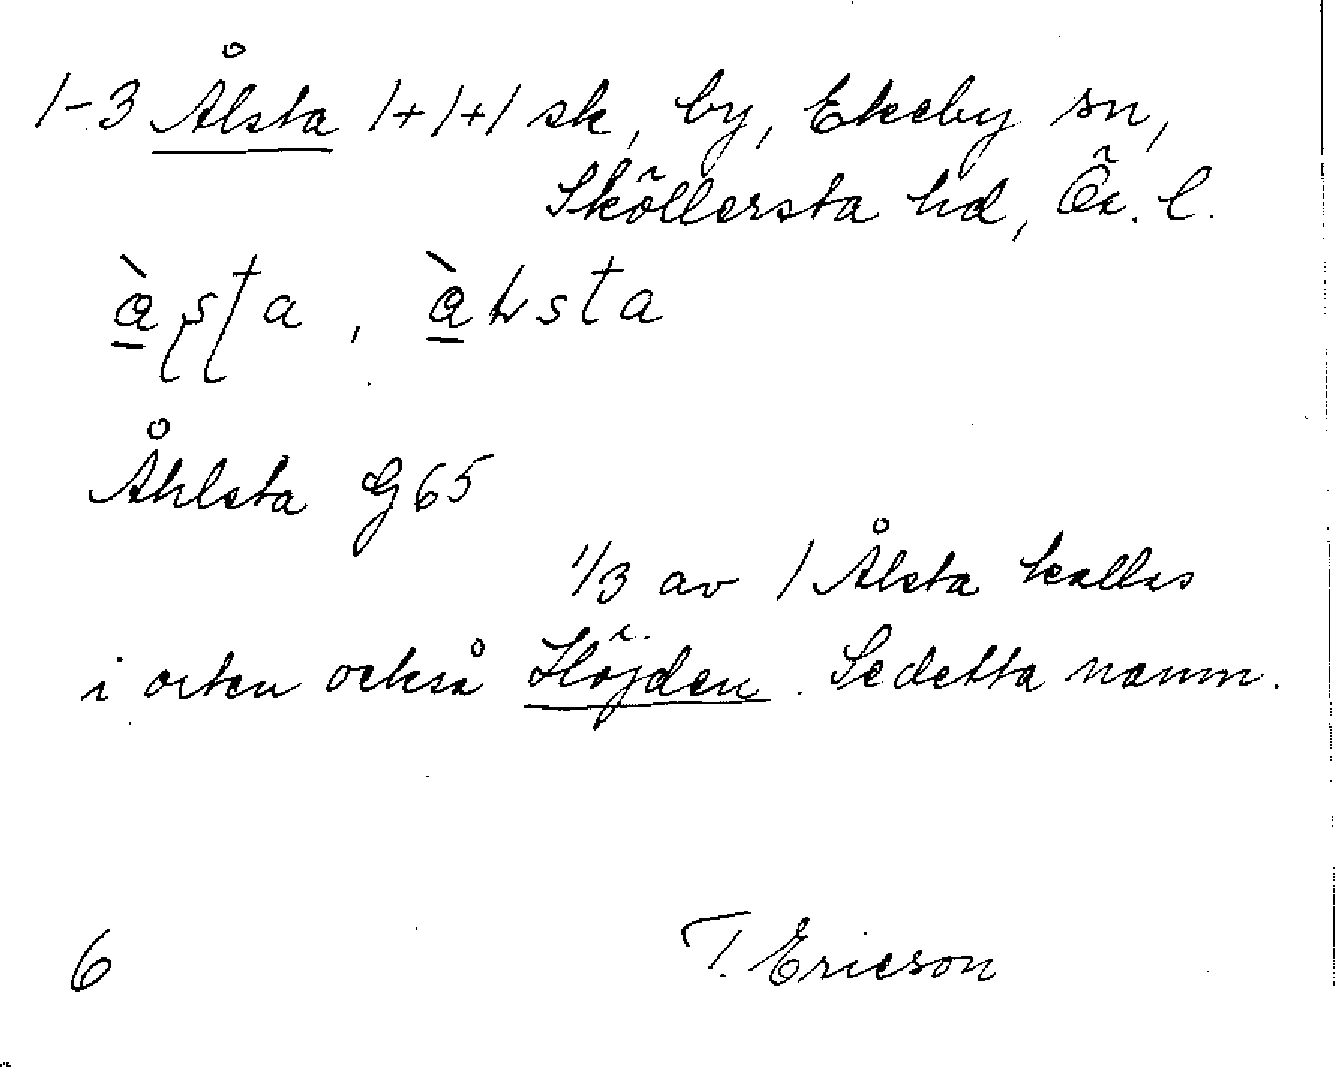 1-3 Ålsta 1+1+1 sk, by, Ekeby sn,
Sköllersta hd, Ör. l.
Åhlsta G65
1/3 av 1 Ålsta kallas
i orten också Höjden. Se detta namn.
6 T. Ericson